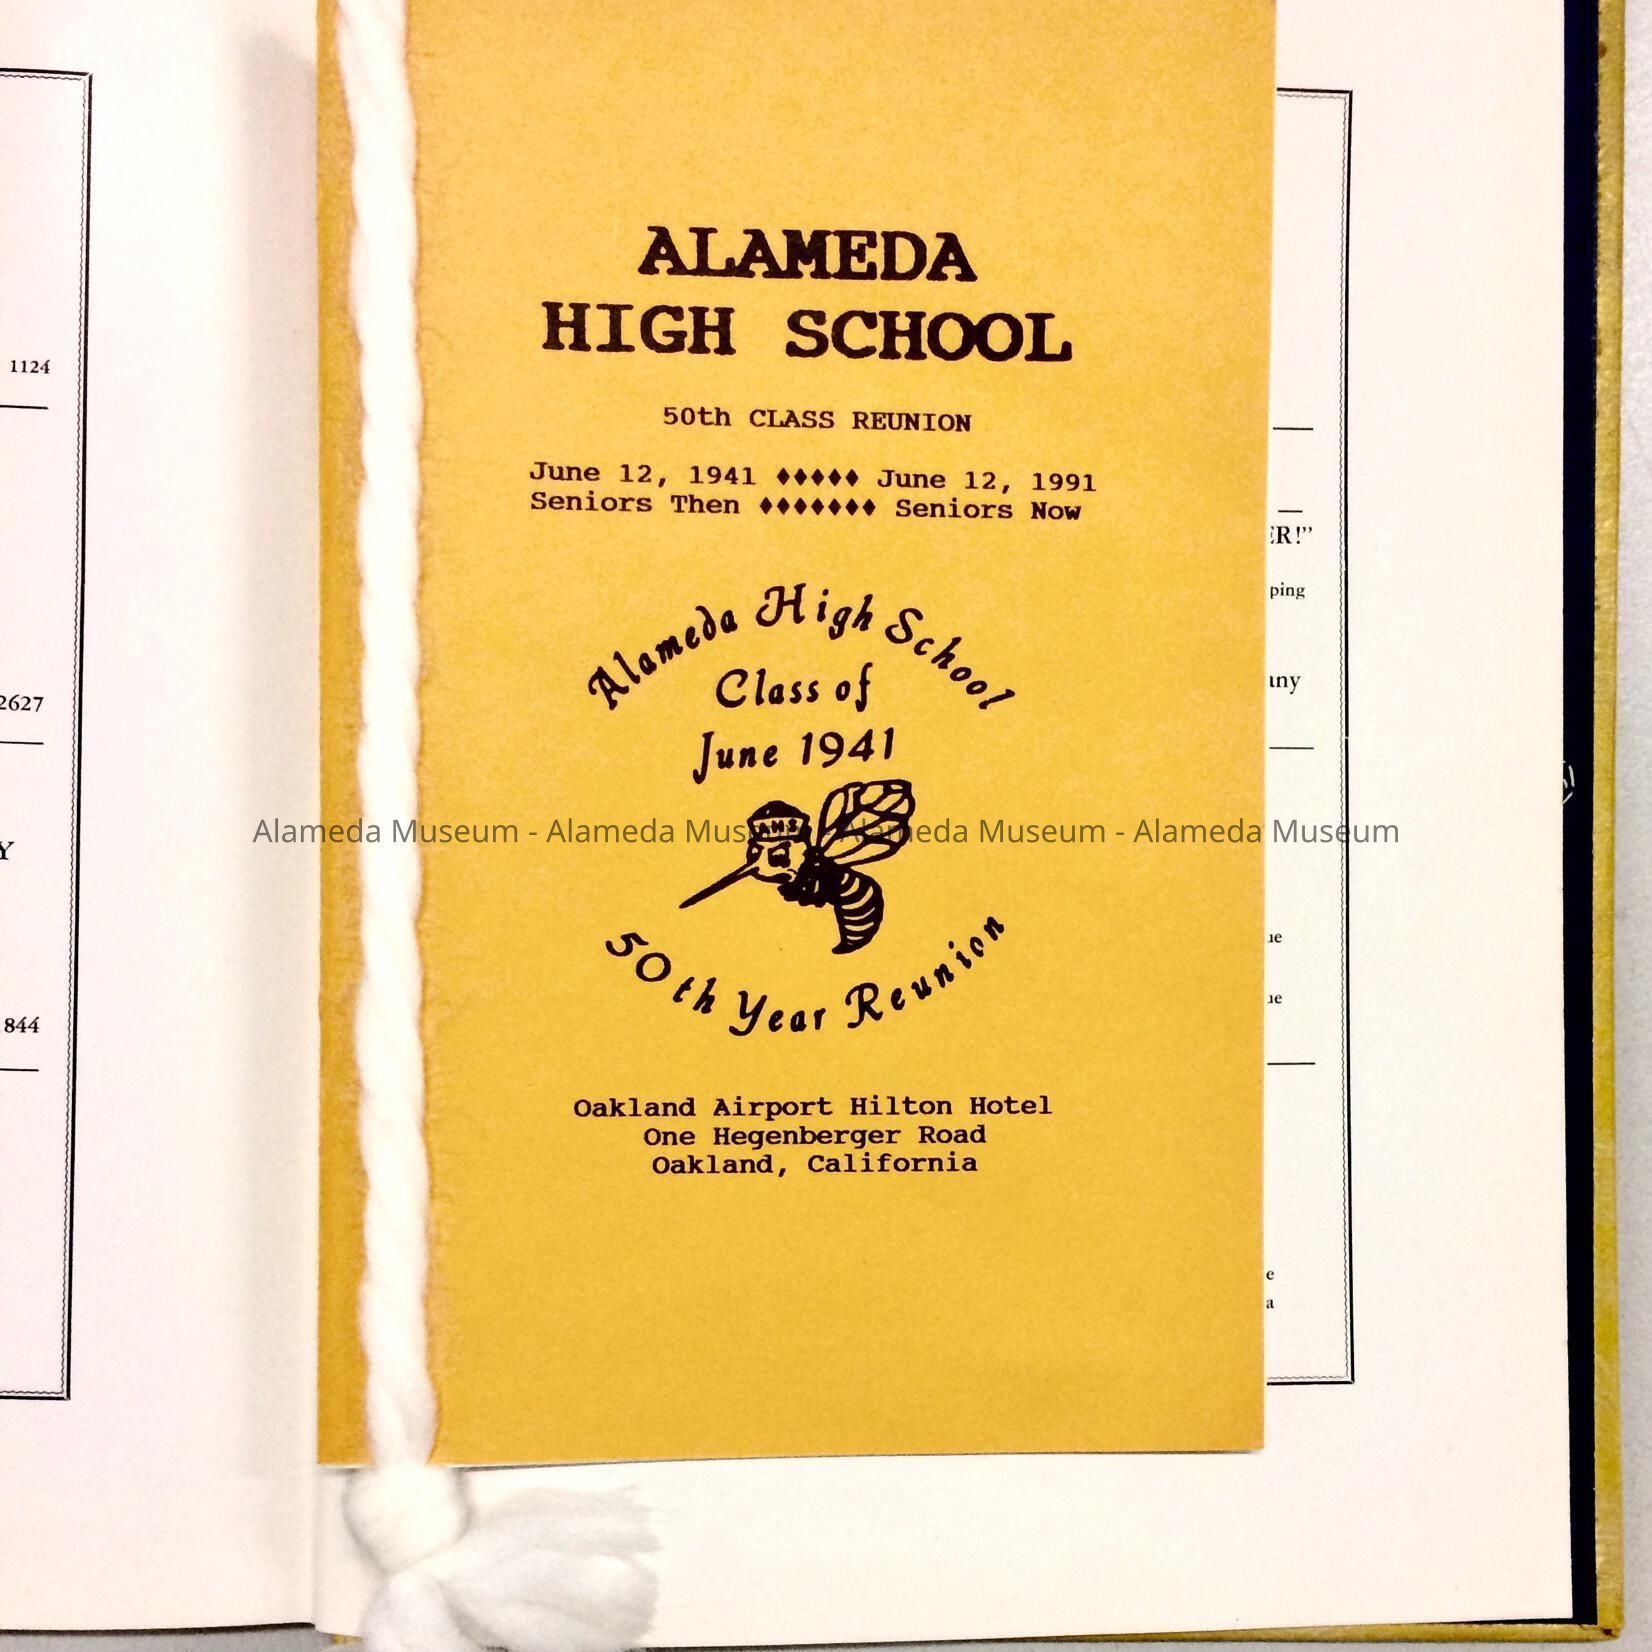 1124
2627
Y
844
ALAMEDA
HIGH SCHOOL
50th CLASS REUNION
June 12, 1941 ♦♦♦♦♦ June 12, 1991
Seniors Then ♦♦♦♦♦♦♦ Seniors Now
Alameda High School
Class of
June 1941
AHS
50th Year Reunion
Oakland Airport Hilton Hotel
One Hegenberger Road
Oakland, California
Alameda Museum - Alameda Museum - Alameda Museum - Alameda Museum
ER!”
ping
any
ue
ue
e
a